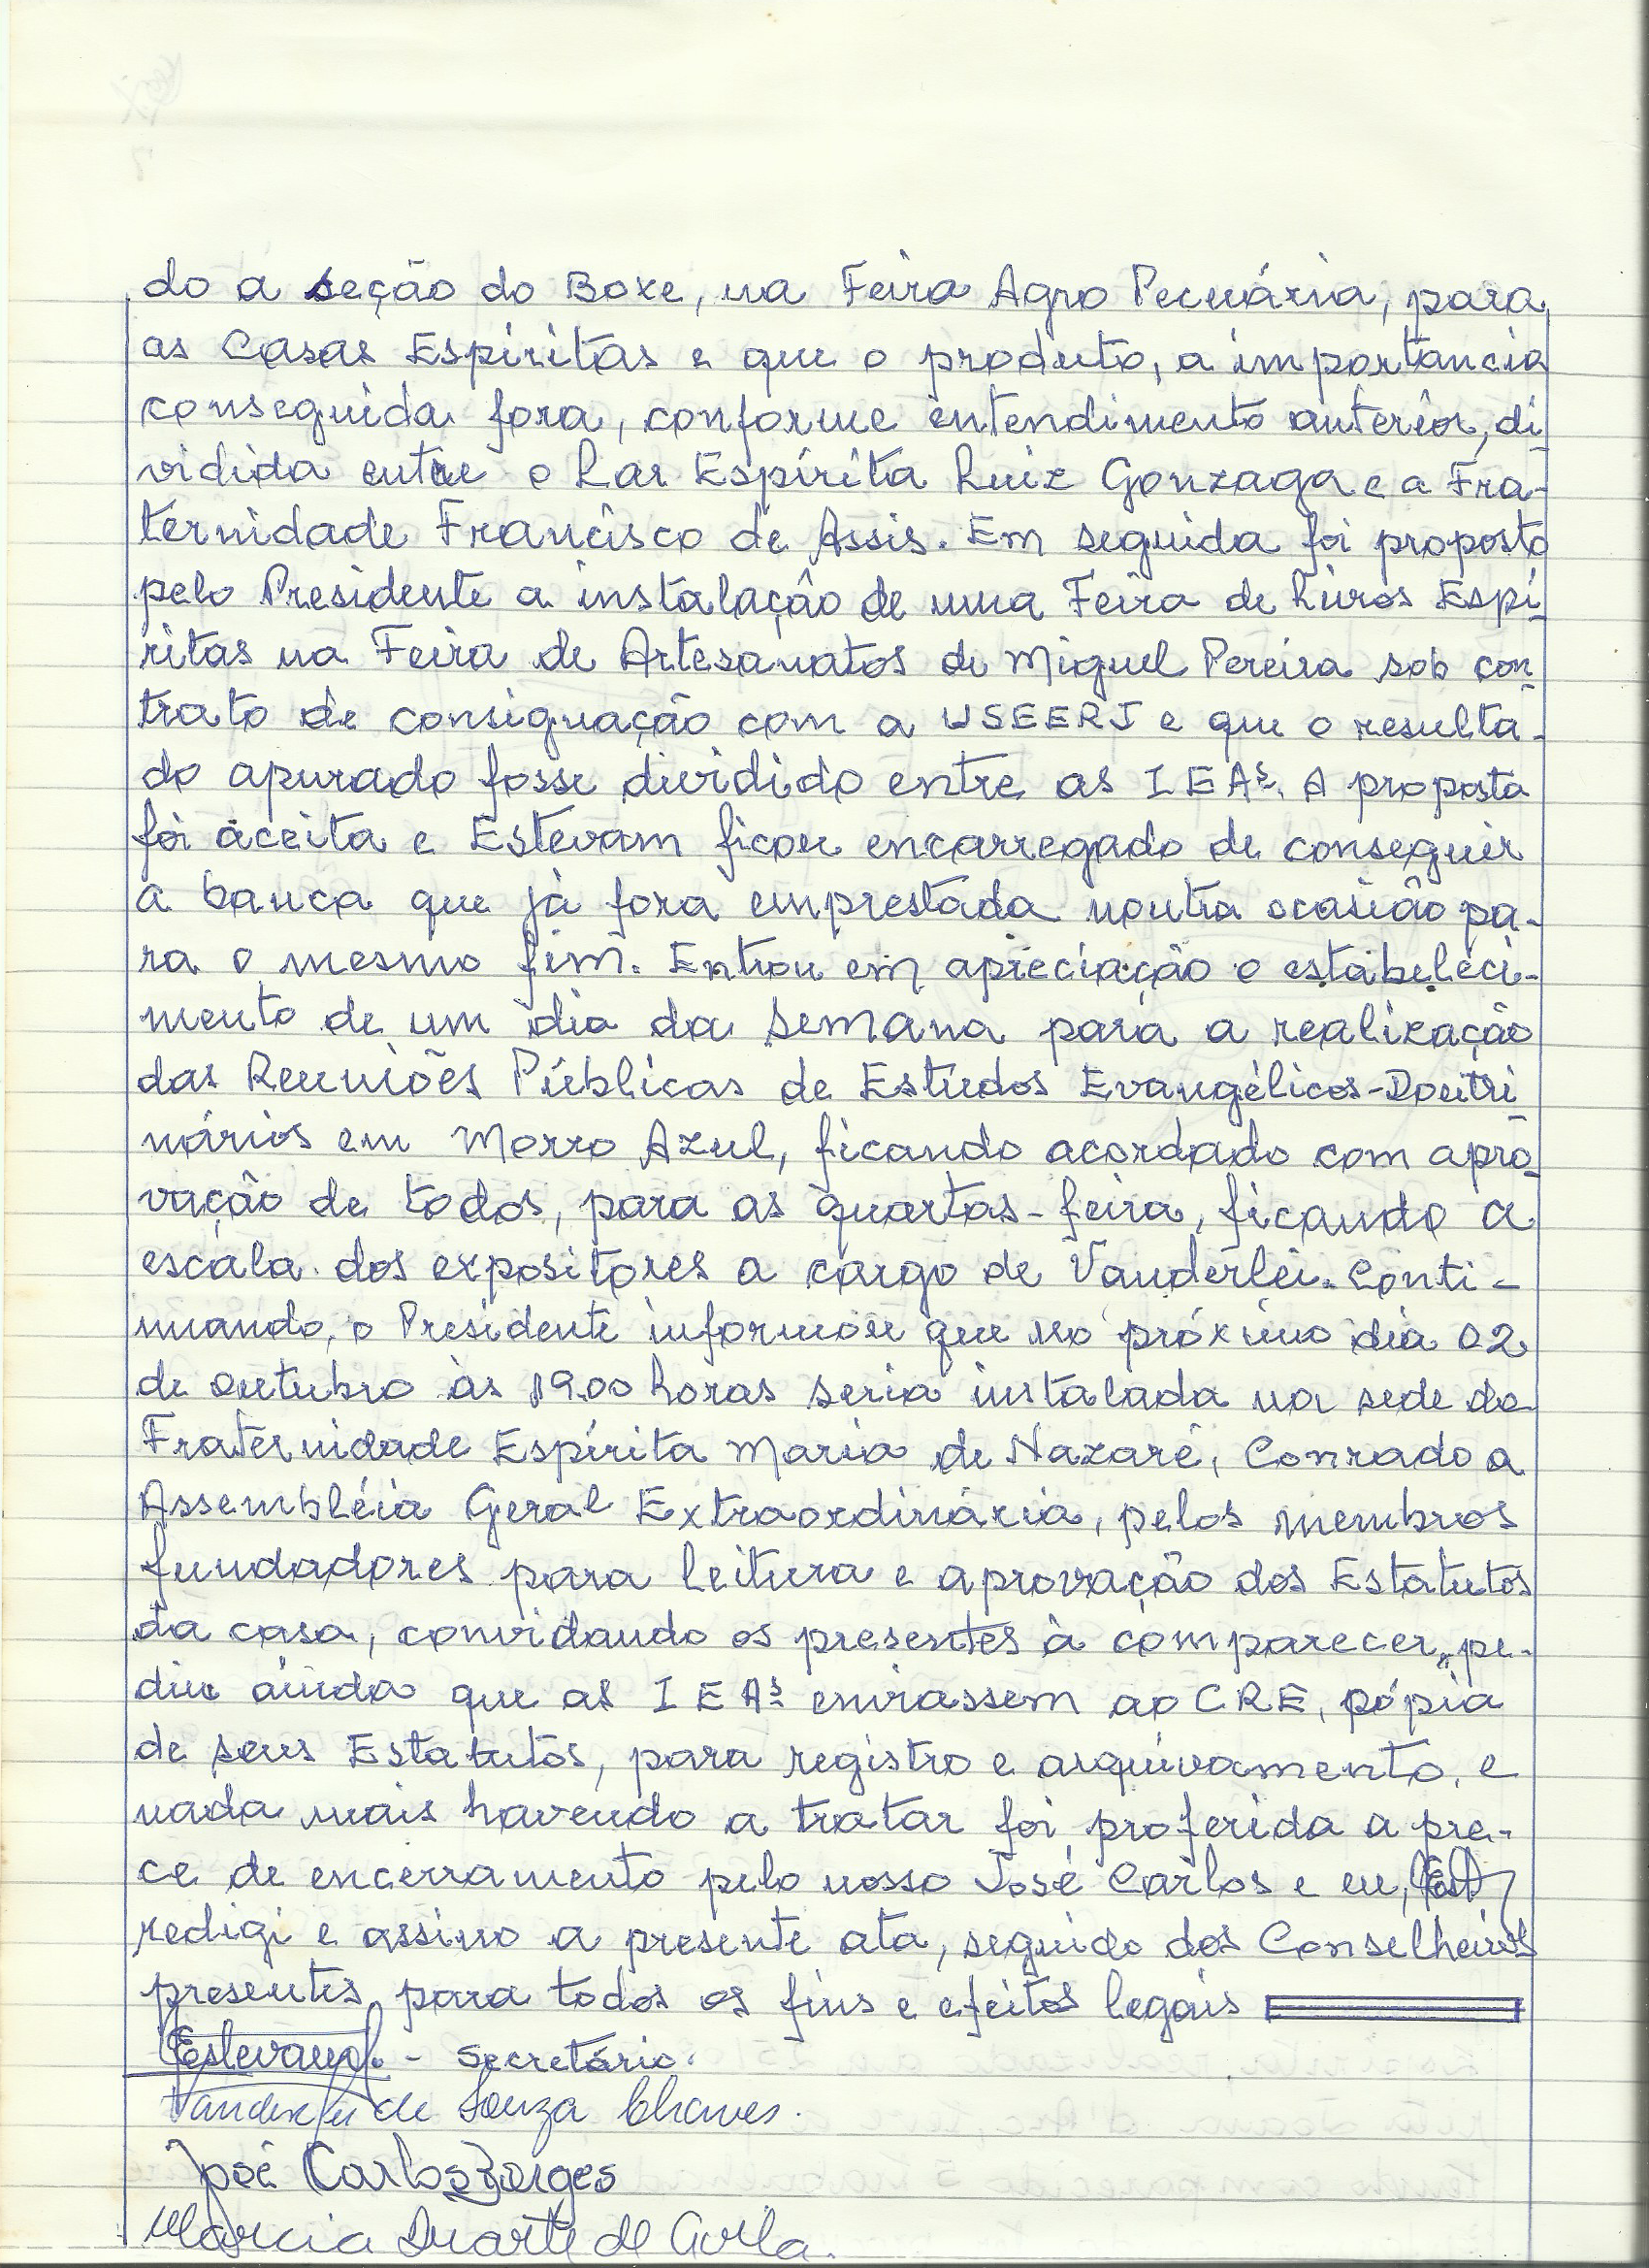 do a seção do Boxe, na Feira Agro Pecuária, para
as Casas Espíritas e que o produto, a importancia
conseguida fora, conforme entendimento anterior, di-
vidida entre o Lar Espírita Luiz Gonzaga e a Fra-
ternidade Francisco de Assis. Em seguida foi proposto
pelo Presidente a instalação de uma Feira de Livros Espí-
ritas na Feira de Artesanatos de Miguel Pereira sob con-
trato de consignação com a USEERJ e que o resulta-
do apurado fosse dividido entre as IEAs. A proposta
foi aceita e Estevam ficou encarregado de conseguir
a banca que já fora emprestada noutra ocasião pa-
ra o mesmo fim. Entrou em apreciação o estabeleci-
mento de um dia da semana para a realização
das Reuniões Públicas de Estudos Evangélicos-Doutri-
nários em Morro Azul, ficando acordado com apro-
vação de todos, para as quartas-feira, ficando a
escala dos expositores a cargo de Vanderlei. Conti-
nuando, o Presidente informou que no próximo dia 02
de outubro às 19.00 horas seria instalada na sede da
Fraternidade Espírita Maria de Nazaré, Conrado a
Assembléia Geral Extraordinária, pelos membros
fundadores para leitura e aprovação dos Estatutos
da casa, convidando os presentes à comparecer, pe-
diu ainda que as IEAs enviassem ao CRE, cópia
de seus Estatutos, para registro e arquivamento, e
nada mais havendo a tratar foi proferida a pre-
ce de encerramento pelo nosso José Carlos e eu,
redigi e assino a presente ata, seguido dos Conselheiros
presentes para todos os fins e efeitos legais
Estevam - secretário.
Vanderlei de Souza Chaves.
José Carlos Borges
Marcia Duarte de Avila.